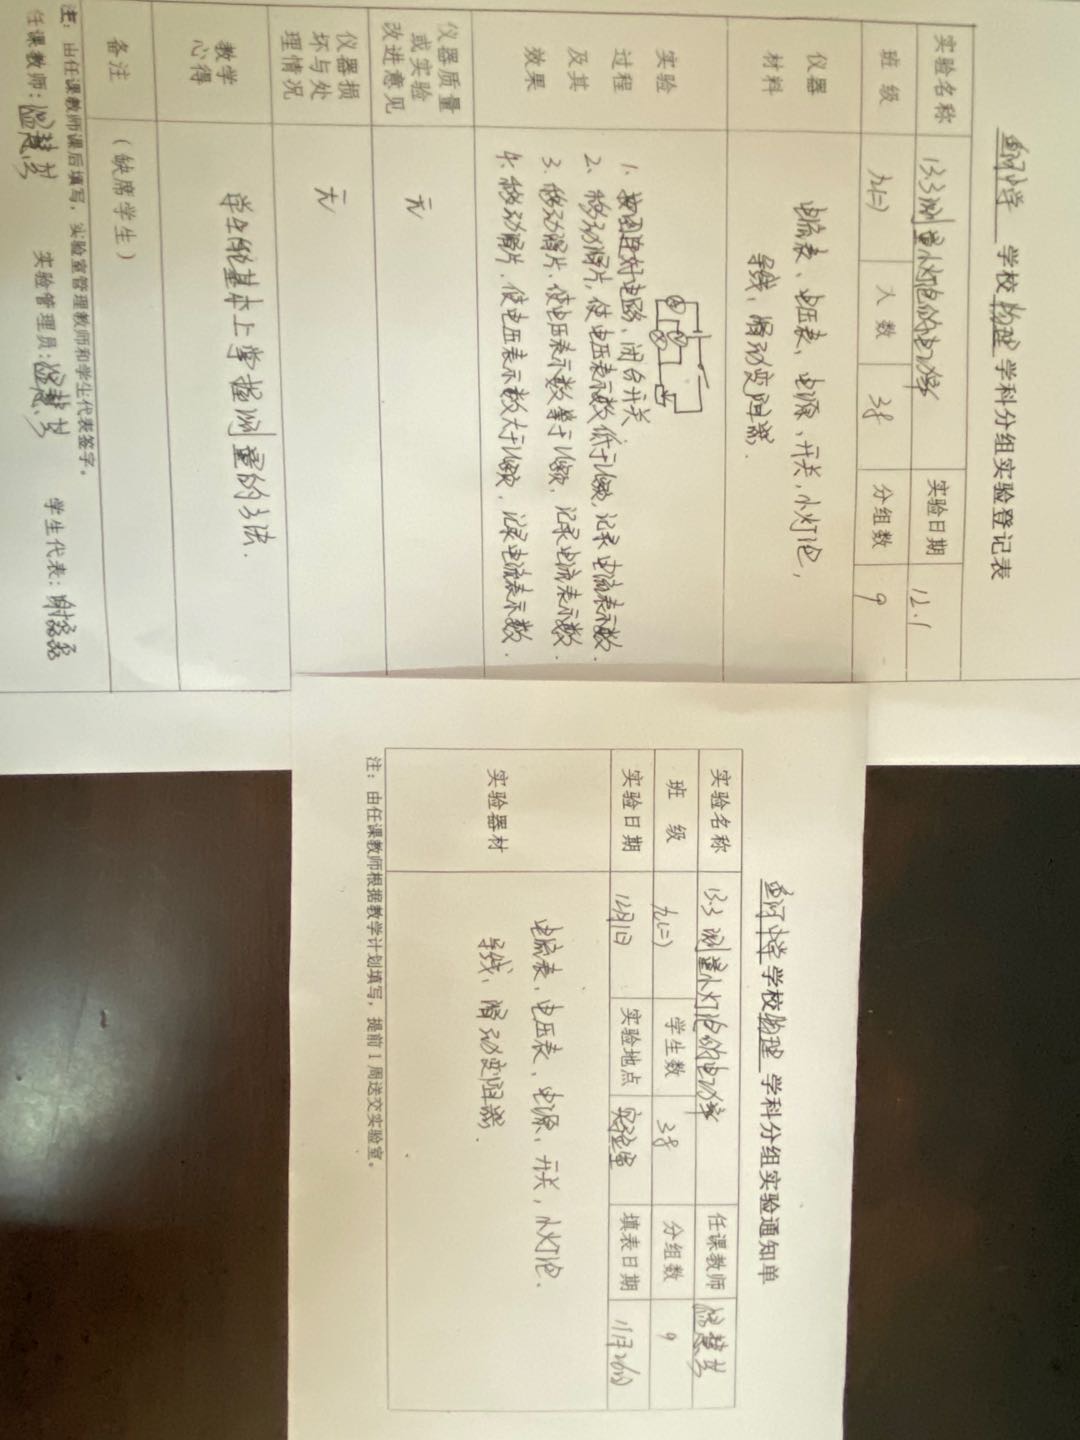 学校物理学科分组实验登记表
实验名称 13.3测量小灯泡的电功率 实验日期 12.1
班级 九(二) 人数 38 分组数 9
仪器材料 电流表、电压表、电源、开关、小灯泡、
导线、滑动变阻器.
实验过程及其效果
1. 按图连好电路、闭合开关
2. 移动滑片,使电压表示数低于U额,记录电流表示数.
3. 移动滑片,使电压表示数等于U额,记录电流表示数.
4. 移动滑片,使电压表示数大于U额,记录电流表示数.
仪器质量或实验改进意见 无
仪器损坏与处理情况 无
教学心得 学生能基本上掌握测量的方法.
备注 (缺席学生)
注:由任课教师课后填写,实验室管理教师和学生代表签字。
任课教师: 实验管理员: 学生代表:
学校物理学科分组实验通知单
实验名称 13.3测量小灯泡的电功率 任课教师
班级 九(二) 学生数 38 分组数 9
实验日期 12月1日 实验地点 实验室 填表日期 11月26日
实验器材 电流表、电压表、电源、开关、小灯泡.
导线、滑动变阻器.
注:由任课教师根据教学计划填写,提前1周送交实验室。